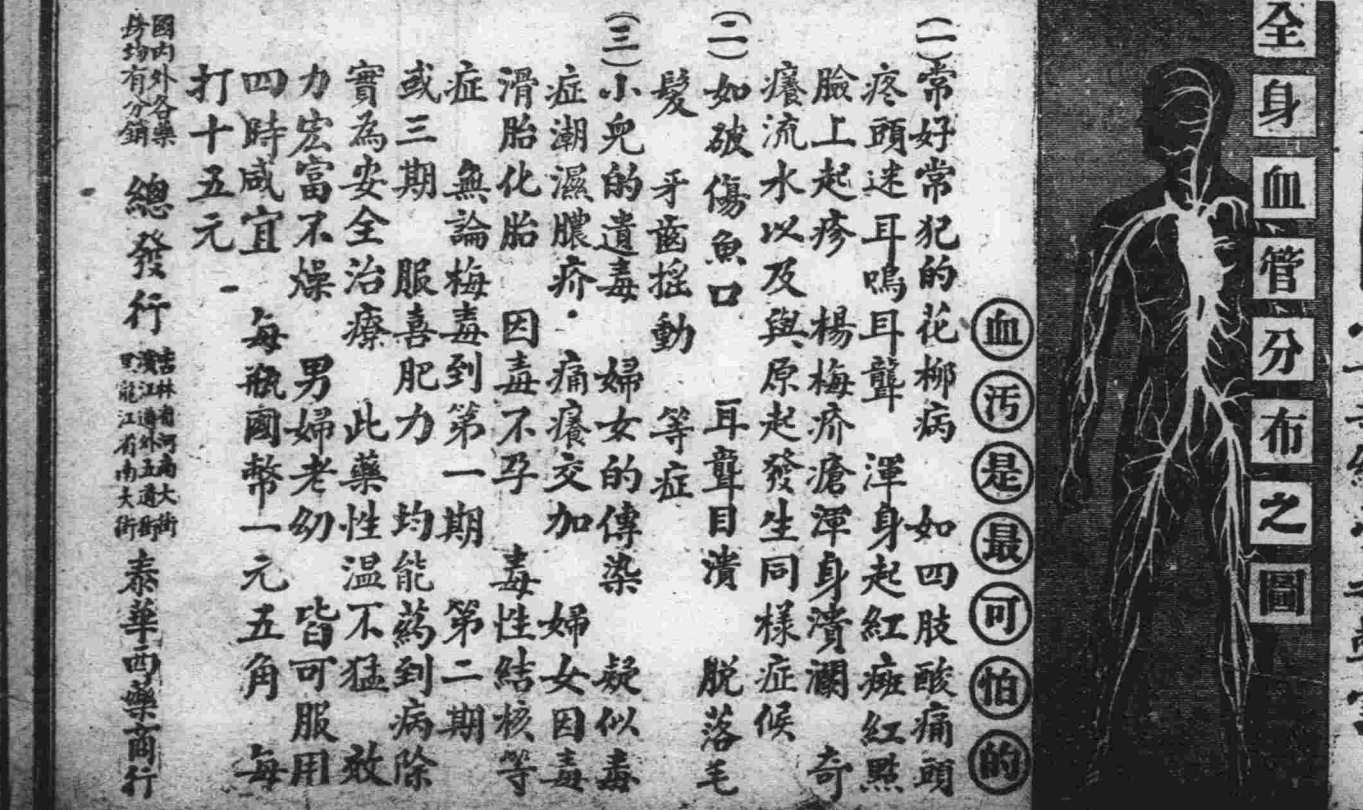 全身血管分布之圖
血污是最可怕的
(一)常好常犯的花柳病 如四肢酸痛頭
疼頭迷耳鳴耳聾 渾身起紅斑紅點
臉上起疹 楊梅疥瘡渾身潰瀾 奇
癢流水以及與原起發生同樣症候
(二)如破傷魚口 耳聾目潰 脫落毛
髮 牙齒摇動 等症
(三)小兒的遺毒 婦女的傳染 疑似毒
症潮濕膿疥·痛癢交加 婦女因毒
滑胎化胎 因毒不孕 毒性結核等
症 無論梅毒到第一期 第二期
或三期 服喜肥力 均能葯到病除
實為安全治療 此藥性温不猛 效
力宏富不燥 男婦老幼 皆可服用
四時咸宜 每瓶國幣一元五角 每
打十五元
國内外各藥
房均有分銷
總發行
吉林省河南大街
濱江道外五道街
黑龍江省南大街
泰華西藥商行